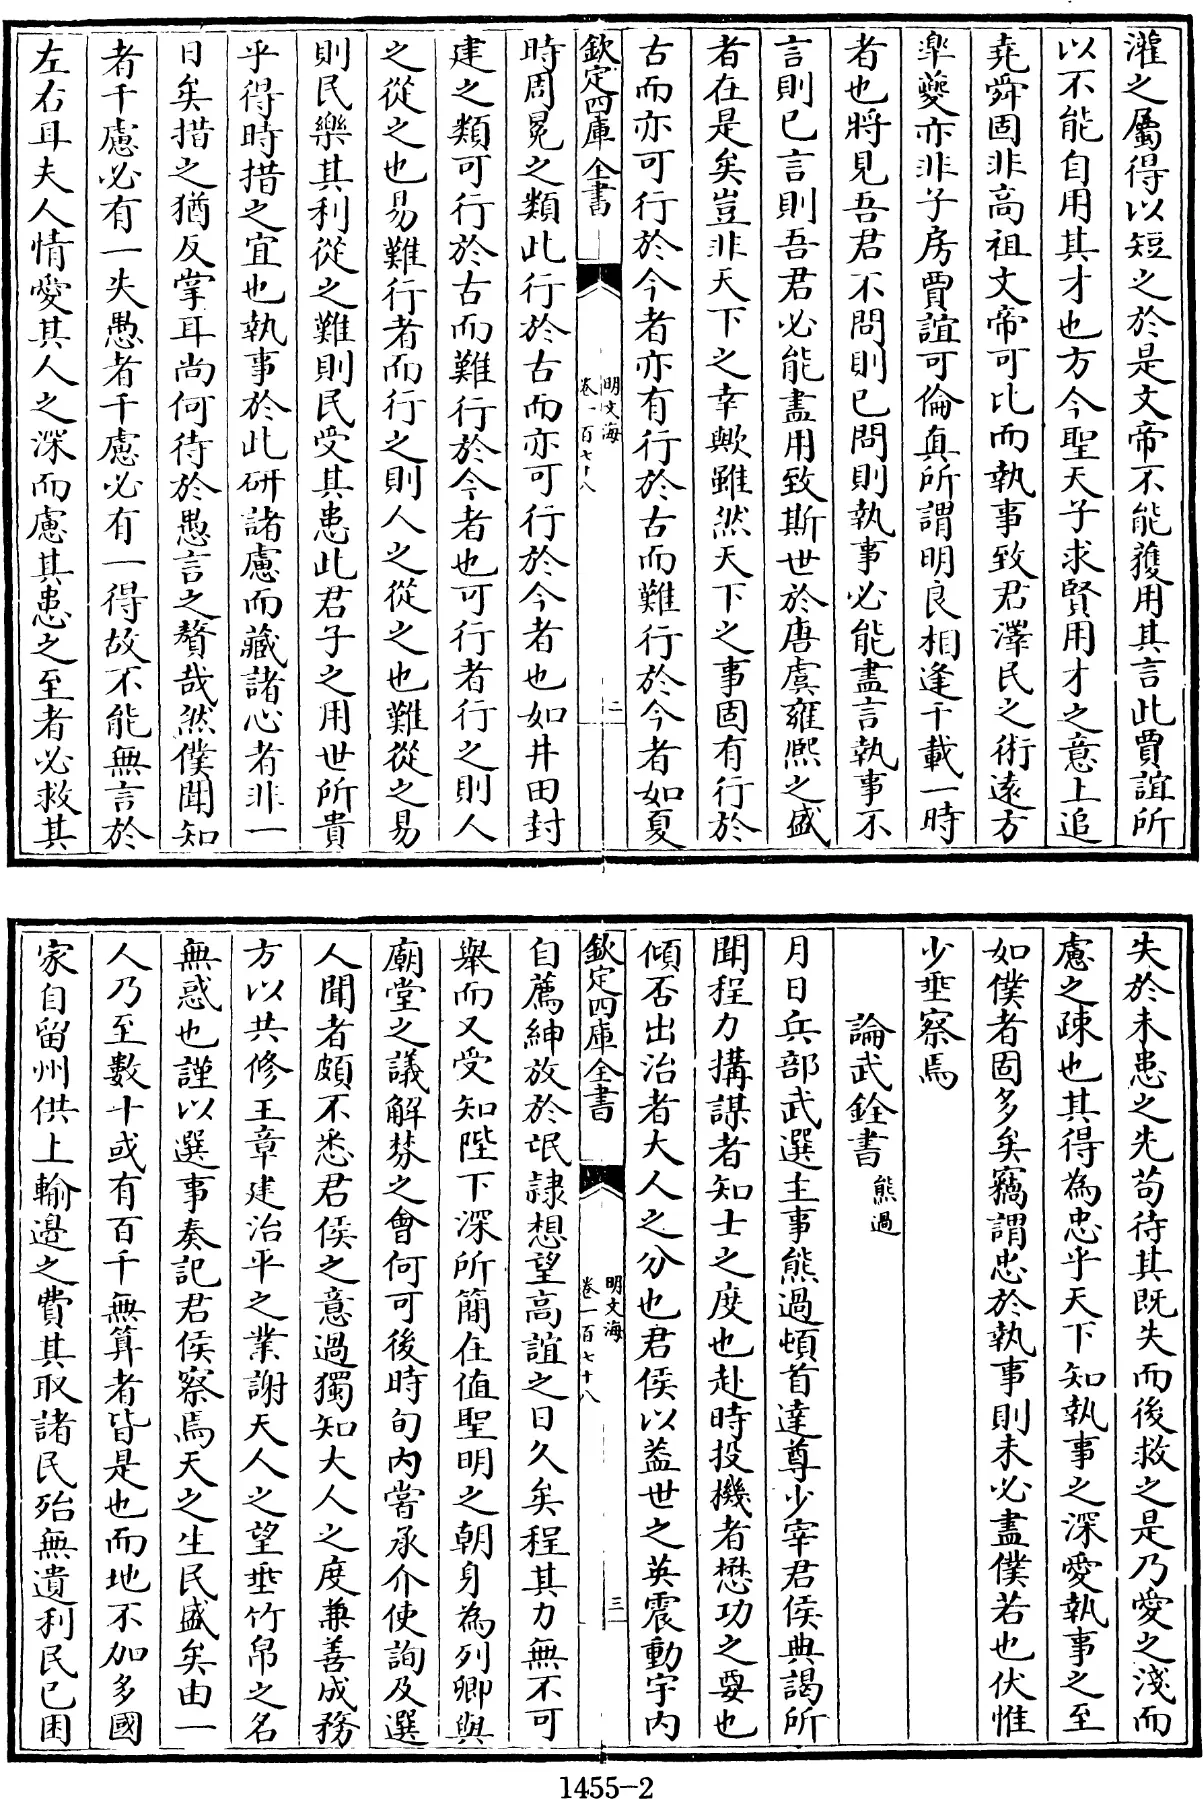 灌之屬得以短之於是文帝不能獲用其言此賈誼所
以不能自用其才也方今聖天子求賢用才之意上追
堯舜固非高祖文帝可比而執事致君澤民之術遠方
臯夔亦非子房賈誼可倫真所謂明良相逢千載一時
者也將見吾君不問則已問則執事必能盡言執事不
言則已言則吾君必能盡用致斯世於唐虞雍熙之盛
者在是矣豈非天下之幸歟雖然天下之事固有行於
古而亦可行於今者亦有行於古而難行於今者如夏
欽定四庫全書
明文海
卷一百七十八
二
時周冕之類此行於古而亦可行於今者也如井田封
建之類可行於古而難行於今者也可行者行之則人
之從之也易難行者而行之則人之從之也難從之易
則民樂其利從之難則民受其患此君子之用世所貴
乎得時措之宜也執事於此研諸慮而藏諸心者非一
日矣措之猶反掌耳尚何待於愚言之贅哉然僕聞知
者千慮必有一失愚者千慮必有一得故不能無言於
左右耳夫人情愛其人之深而慮其患之至者必救其
失於未患之先茍待其既失而後救之是乃愛之淺而
慮之疎也其得為忠乎天下知執事之深愛執事之至
如僕者固多矣竊謂忠於執事則未必盡僕若也伏惟
少垂察焉
論武銓書 熊過
月日兵部武選主事熊過頓首達尊少宰君侯典謁所
聞程力搆謀者知士之度也赴時投機者懋功之要也
傾否出治者大人之分也君侯以蓋世之英震動宇内
欽定四庫全書
明文海
卷一百七十八
三
自薦紳放於氓隷想望高誼之日久矣程其力無不可
舉而又受知陛下深所簡在值聖明之朝身為列卿與
廟堂之議解棼之會何可後時旬内嘗承介使詢及選
人聞者頗不悉君侯之意過獨知大人之度兼善成務
方以共修王章建治平之業謝天人之望垂竹帛之名
無惑也謹以選事奏記君侯察焉天之生民盛矣由一
人乃至數十或有百千無算者皆是也而地不加多國
家自留州供上輸邉之費其取諸民殆無遺利民已困
1455-2